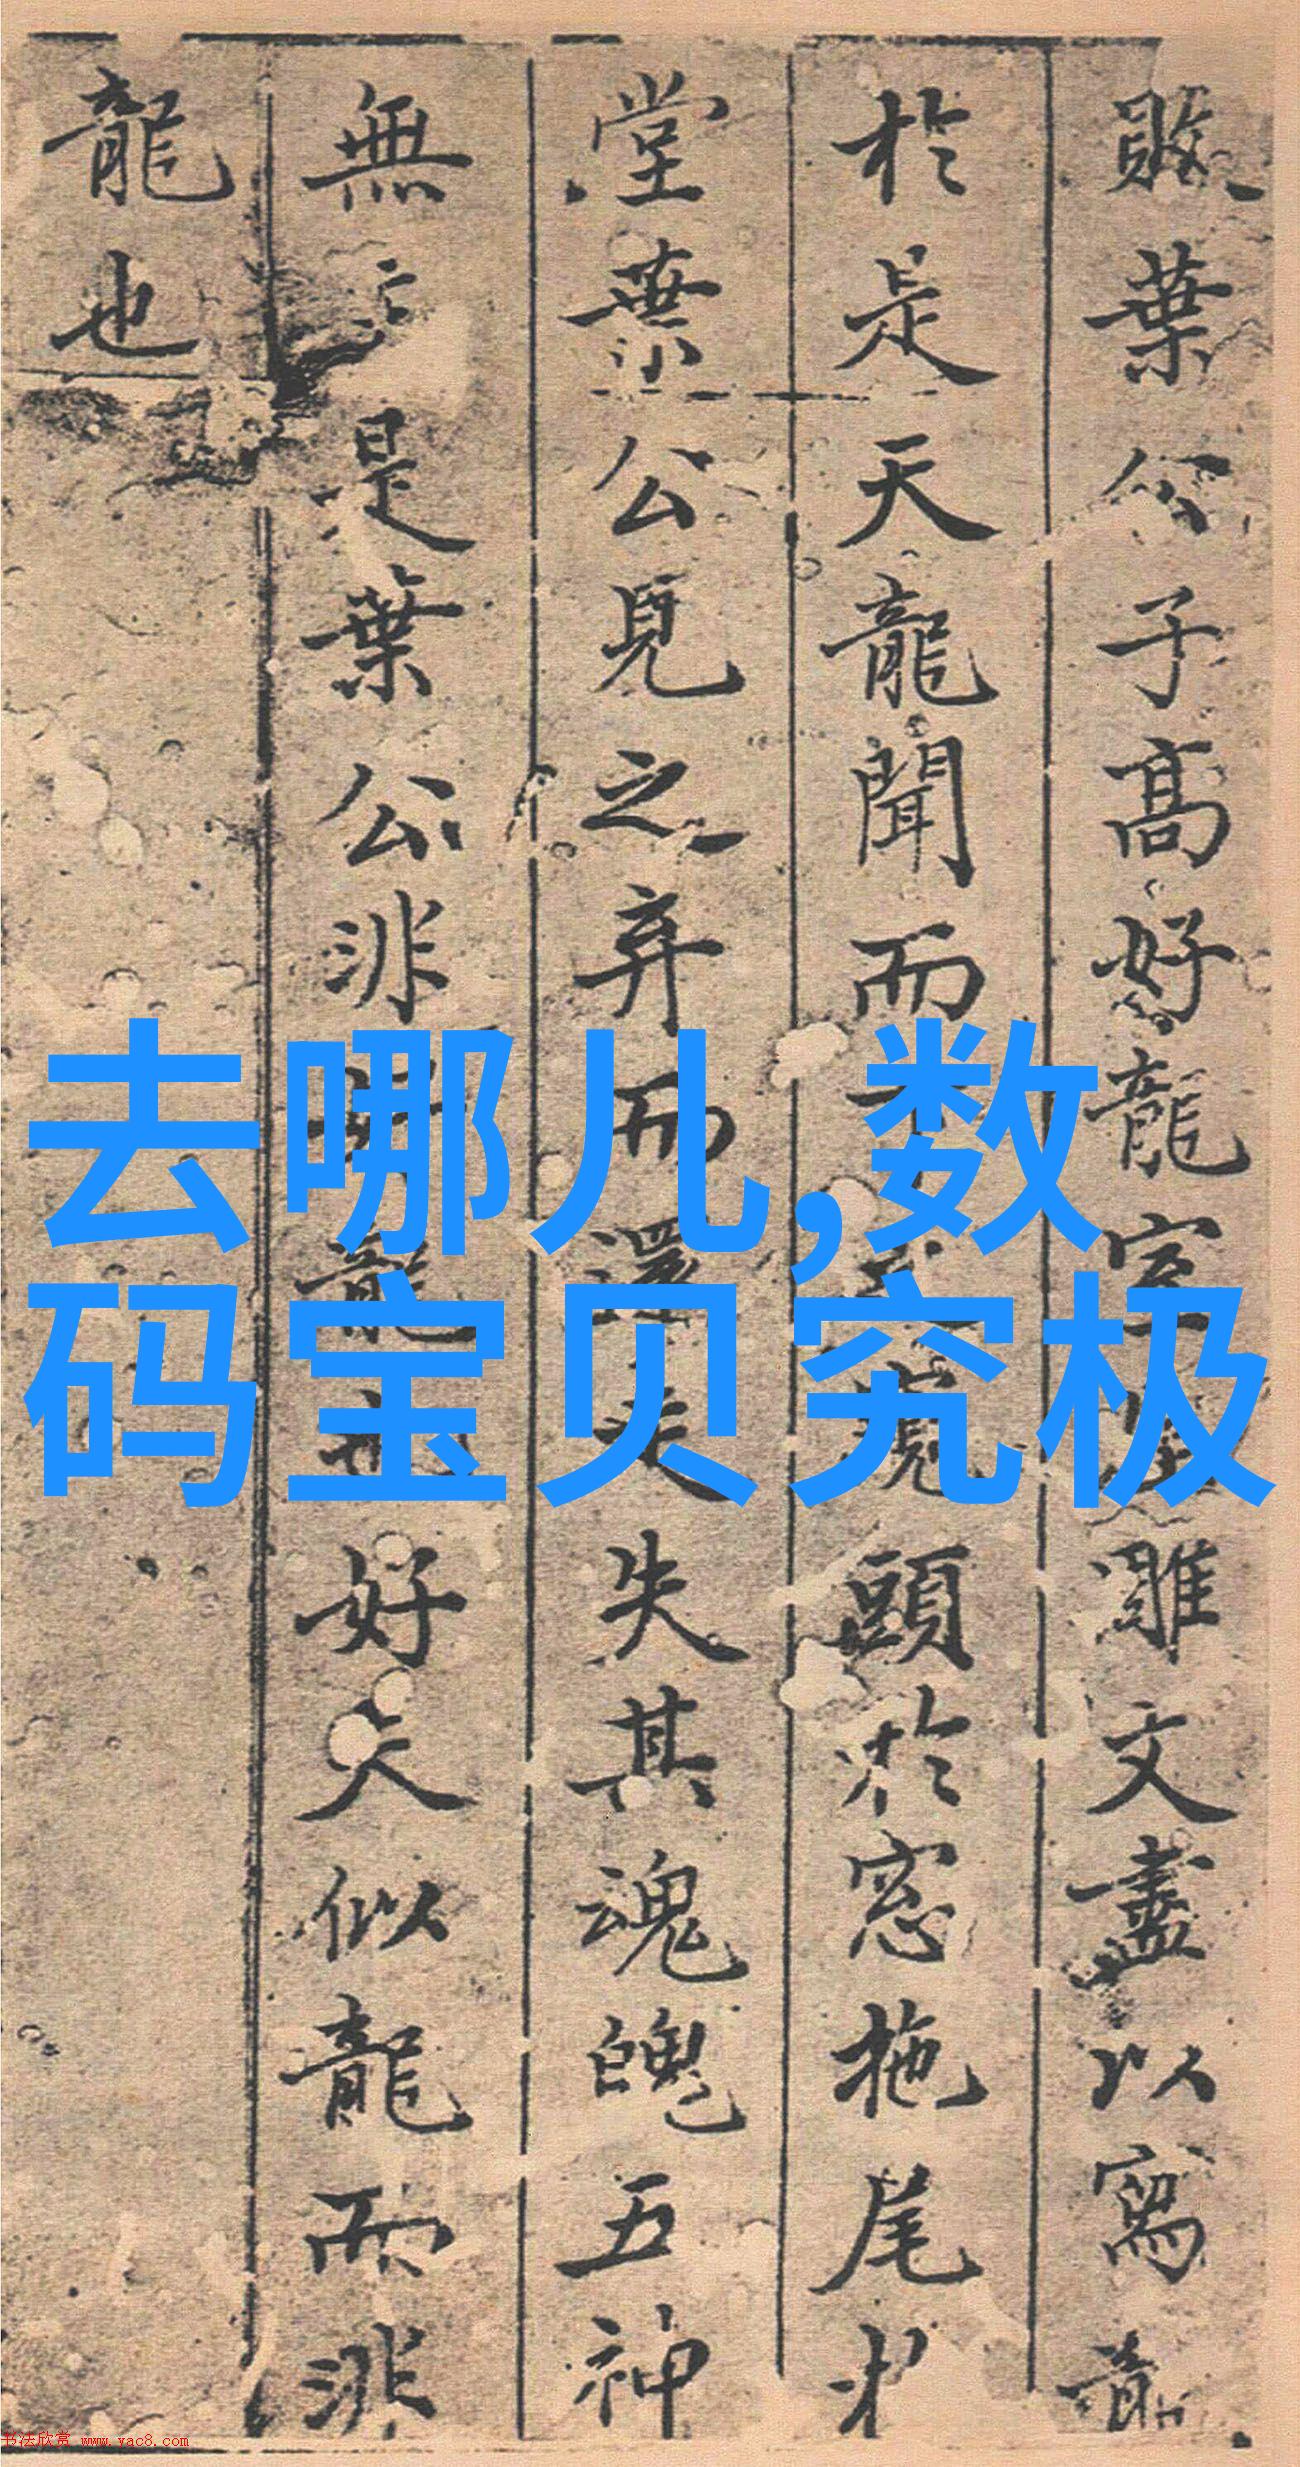 敗葉公子髙好龍室雕文盡以寫龍
於是天龍聞而頭於窓拖尾於
堂葉公見之弃而還走失其魂魄五神
無主是葉公非好龍也好夫似龍而非
龍也
去哪儿,数
码宝贝究极
书法欣赏 www.yac8.com